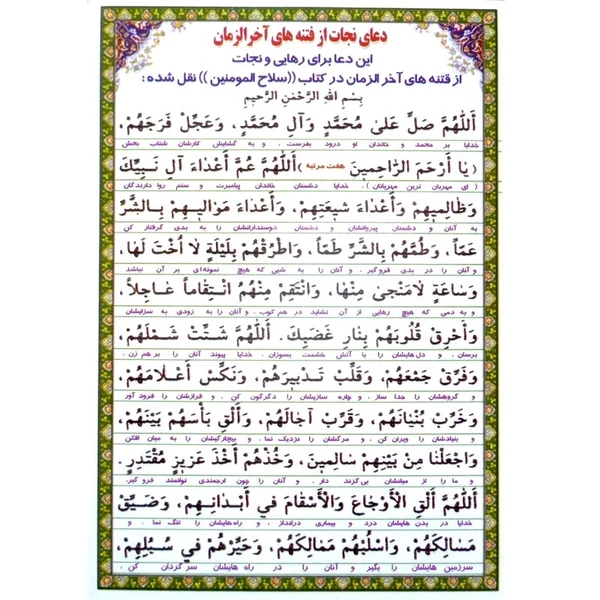 دعای نجات از فتنه های آخر الزمان
این دعا برای رهایی و نجات
از فتنه های آخر الزمان در کتاب ((سلاح المومنین)) نقل شده :
بِسْمِ اللهِ الرَّحْمٰنِ الرَّحیمِ
أَللّٰهُمَّ صَلِّ عَلیٰ مُحَمَّدٍ وَ آلِ مُحَمَّدٍ، وَعَجِّلْ فَرَجَهُمْ،
خدایا بر محمد و خاندان او درود بفرست، و به گشایش کارشان شتاب بخش
یٰا أَرْحَمَ الرّٰاحِمینَ (هفت مرتبه) أَللّٰهُمَّ عُمَّ أَعْدٰاءَ آلِ نَبِیِّكَ
(ای مهربان ترین مهربانان). خدایا دشمنان خاندان پیامبرت و ستم روا دارندگان
وَظٰالِمیهِمْ وَأَعْدٰاءَ شیعَتِهِمْ، وَأَعْدٰاءَ مَوٰالیهِمْ بِالشَّرِّ
به آنان و دشمنان پیروانشان و دشمنان دوستدارانشان را به بدی گرفتار کن
عَمّاً، وَطُمَّهُمْ بِالشَّرِّ طَمّاً، وَاطْرُقْهُمْ بِلَیْلَةٍ لاٰ اُخْتَ لَهٰا،
و آنان را در بدی فروگیر. و آنان را به شبی که هیچ نمونه‌ای بر آن نباشد
وَسٰاعَةٍ لاٰمَنْجیٰ مِنْهٰا، وَانْتَقِمْ مِنْهُمُ انْتِقٰاماً عٰاجِلاً،
و به دمی که هیچ رهایی از آن نشاید در هم کوب. و آنان را به زودی به سزایشان
وَأَحْرِقْ قُلُوبَهُمْ بِنٰارِ غَضَبِكَ. أَللّٰهُمَّ شَتِّتْ شَمْلَهُمْ،
برسان. و دل‌هایشان را با آتش خشمت بسوزان. خدایا پیوند آنان را بر هم زن.
وَفَرِّقْ جَمْعَهُمْ، وَقَلِّبْ تَدْبیرَهُمْ، وَنَكِّسْ أَعْلاٰمَهُمْ،
و گروهشان را جدا ساز. و چاره سازیشان را دگرگون کن. و فرازشان را فرود آور
وَخَرِّبْ بُنْیٰانَهُمْ، وَقَرِّبْ آجٰالَهُمْ، وَأَلْقِ بَأْسَهُمْ بَیْنَهُمْ،
و بنیادشان را ویران کن. و مرگشان را نزدیک نما. و بیچارگیشان را به میان افکن
وَاجْعَلْنٰا مِنْ بَیْنِهِمْ سٰالِمینَ، وَخُذْهُمْ أَخْذَ عَزیزٍ مُقْتَدِرٍ.
و ما را از میانشان بی‌گزند دار. و آنان را چون ارجمندی توانمند فرو گیر.
أَللّٰهُمَّ أَلْقِ الْأَوْجٰاعَ وَالْأَسْقٰامَ فی أَبْدٰانِهِمْ، وَضَیِّقْ
خدایا در بدن هایشان درد و بیماری درانداز. و راه هایشان را تنگ نما. و
مَسٰالِكَهُمْ، وَاسْلُبْهُمْ مَمٰالِكَهُمْ، وَحَیِّرْهُمْ فی سُبُلِهِمْ،
سرزمین هایشان را بگیر و آنان را در راه هایشان سر گردان کن.